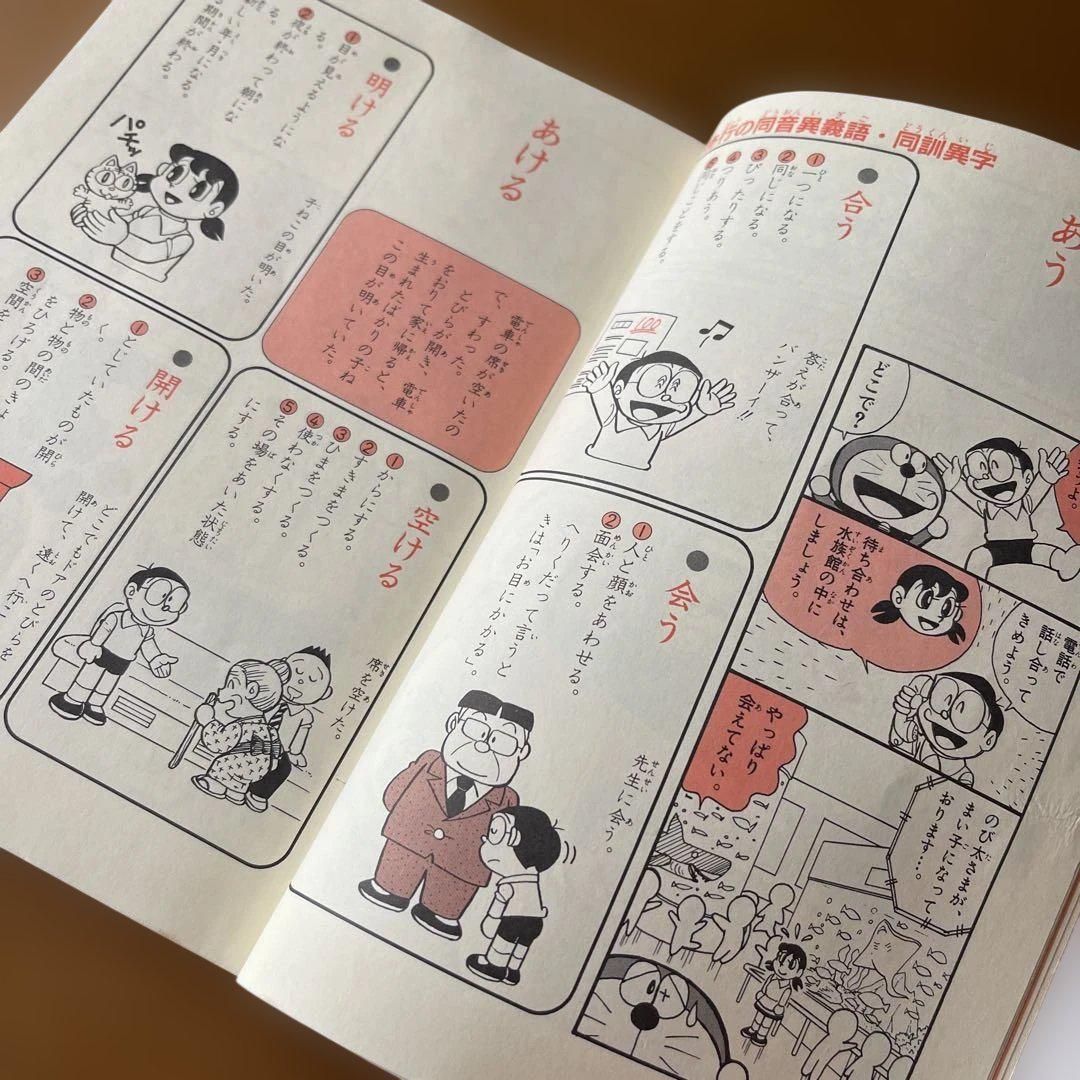 行の同音異義語・同訓異字
あう
合う
①一つになる。
②同じになる。
③ぴったりする。
④つりあう。
答えが合って、
バンザーイ!!
100
会う
①人と顔をあわせる。
②面会する。
へりくだって言うと
きは「お目にかかる」。
先生に会う。
どこで?
電話で
話し合って
きめよう。
待ち合わせは、
水族館の中に
しましょう。
のび太さまが、
まい子になって
おります…。
やっぱり
会えてない。
あける
電車の席が空いたの
で、すわった。
とびらが開き、電車
をおりて家に帰ると、
生まれたばかりの子ね
この目が明いていた。
明ける
①目が見えるようにな
る。
②夜が終わって朝にな
る。
しい年・月になる。
期間が終わる。
パチッ
子ねこの目が明いた。
空ける
①からにする。
②すきまをつくる。
③ひまをつくる。
④使わなくする。
⑤その場をあいた状態
にする。
席を空けた。
開ける
①とじていたものが開
く。
②物と物の間のきょ
をひろげる。
③空間を
どこでもドアのとびらを
開けて、遠くへ行こ